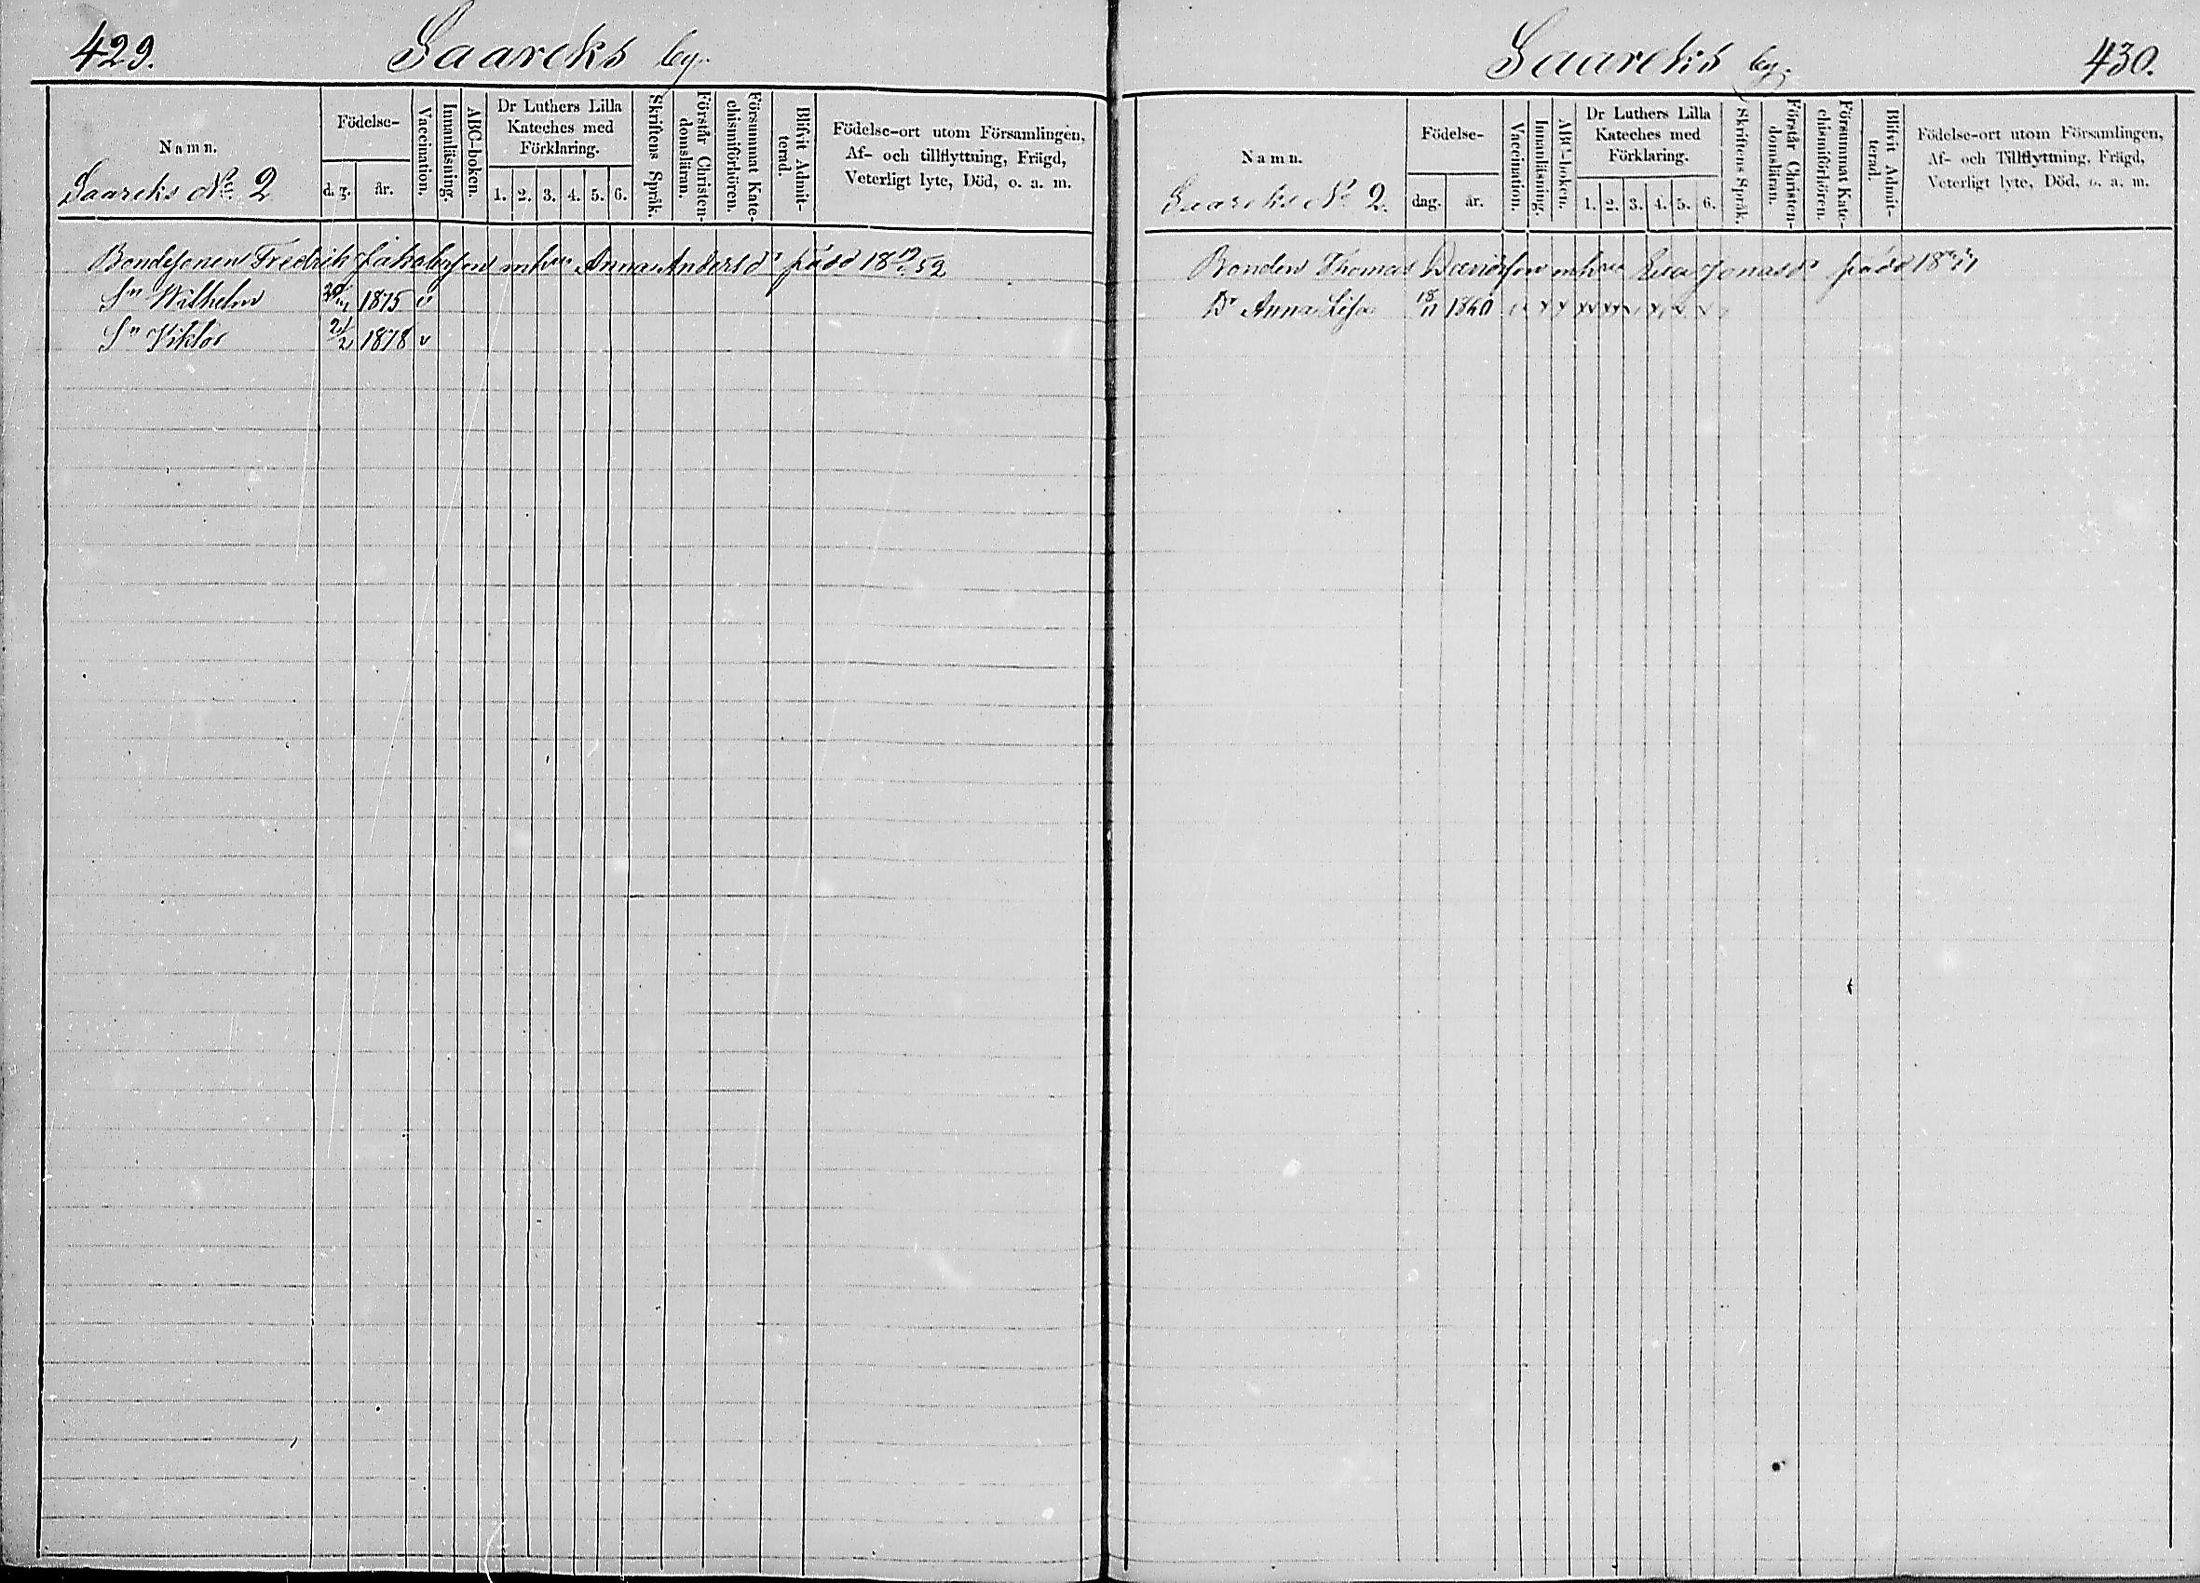 429. Saareks by.
Namn.
Saareks No. 2
Födelse-
d. g.
år.
Vaccination.
Innanläsning.
ABC-boken.
Dr Luthers Lilla
Kateches med
Förklaring.
1. 2. 3. 4. 5. 6.
Skriftens Språk.
Förstår Christen-
domsläran.
Försummat Kate-
chismiförhören.
Blifvit Admit-
terad.
Födelse-ort utom Församlingen,
Af- och tillflyttning, Frägd,
Veterligt lyte, Död, o. a. m.
Bondesonen Fredrik Jakobsson m hu Anna Andersdr född 18 52
Sn Wilhelm 1875 v
Sn Viktor 2/2 1878 v
Saareks by. 430.
Namn.
Saareks No 2.
Födelse-
dag.
år.
Vaccination.
Innanläsning.
ABC-boken.
Dr Luthers Lilla
Kateches med
Förklaring.
1. 2. 3. 4. 5. 6.
Skriftens Språk.
Förstår Christen-
domsläran.
Försummat Kate-
chismiförhören.
Blifvit Admit-
terad.
Födelse-ort utom Församlingen,
Af- och Tillflyttning, Frägd,
Veterligt lyte, Död, o. a. m.
Bonden Thomas Davidsson m hu Eva Jonasdr född
Dr Anna Lisa 1860